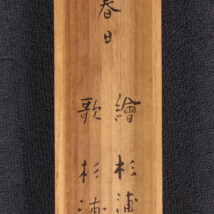 春日
繪 杉浦
歌 杉浦